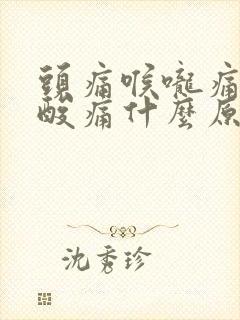 頭痛喉嚨痛
酸痛什麼原
沈秀珍